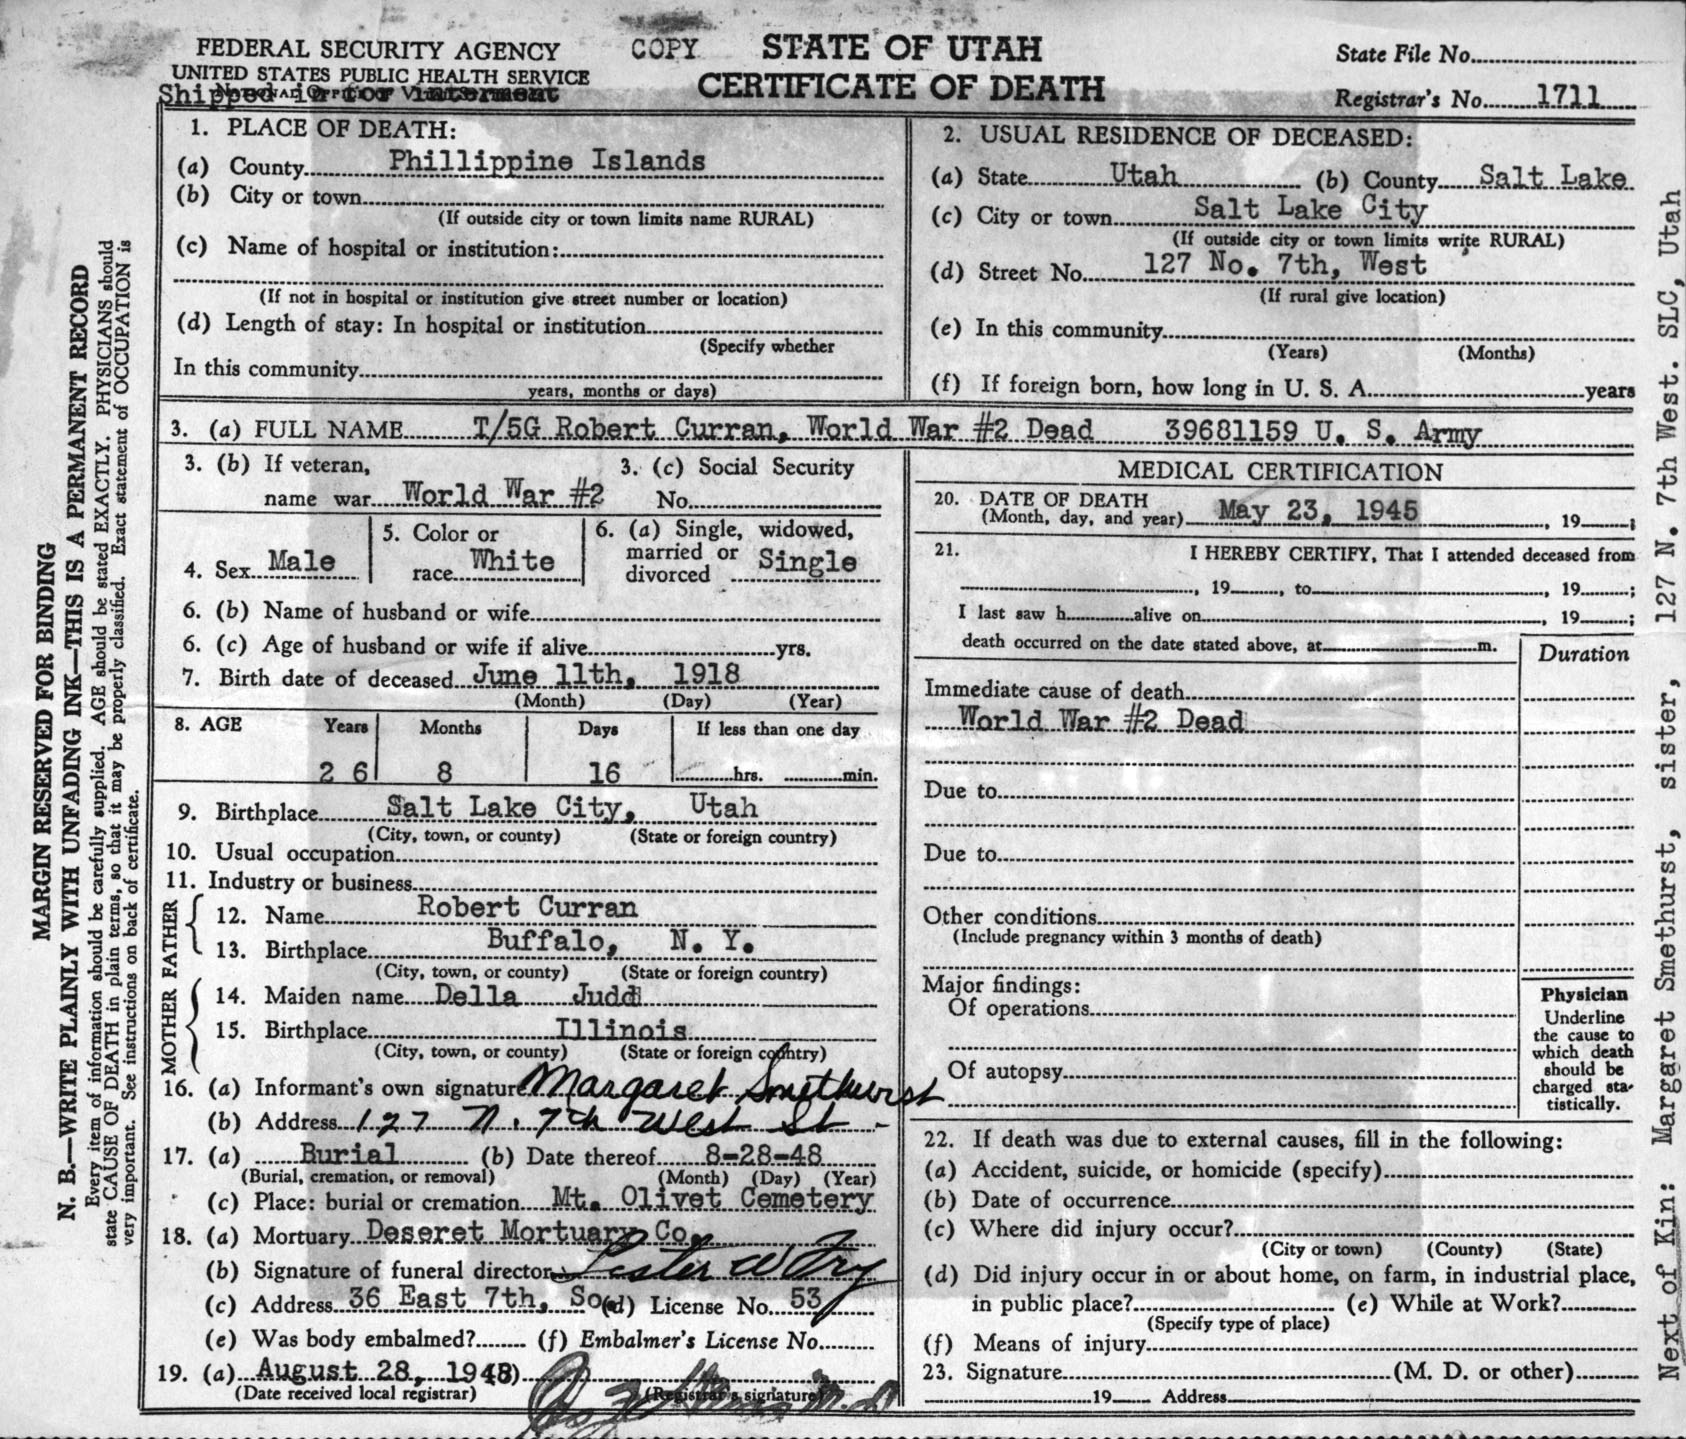 FEDERAL SECURITY AGENCY
UNITED STATES PUBLIC HEALTH SERVICE
Shipped in for interment
COPY
STATE OF UTAH
CERTIFICATE OF DEATH
State File No.
Registrar's No. 1711
1. PLACE OF DEATH:
(a) County Phillippine Islands
(b) City or town
(If outside city or town limits name RURAL)
(c) Name of hospital or institution:
(If not in hospital or institution give street number or location)
(d) Length of stay: In hospital or institution
(Specify whether
In this community
years, months or days)
2. USUAL RESIDENCE OF DECEASED:
(a) State Utah (b) County Salt Lake
(c) City or town Salt Lake City
(If outside city or town limits write RURAL)
(d) Street No. 127 No. 7th, West
(If rural give location)
(e) In this community
(Years) (Months)
(f) If foreign born, how long in U. S. A. years
3. (a) FULL NAME T/5G Robert Curran, World War #2 Dead 39681159 U. S. Army
3. (b) If veteran,
name war World War #2
3. (c) Social Security
No.
4. Sex Male
5. Color or
race White
6. (a) Single, widowed,
married or
divorced Single
6. (b) Name of husband or wife
6. (c) Age of husband or wife if alive yrs.
7. Birth date of deceased June 11th, 1918
(Month) (Day) (Year)
8. AGE Years Months Days If less than one day
26 8 16 hrs. min.
9. Birthplace Salt Lake City, Utah
(City, town, or county) (State or foreign country)
10. Usual occupation
11. Industry or business
FATHER
12. Name Robert Curran
13. Birthplace Buffalo, N. Y.
(City, town, or county) (State or foreign country)
MOTHER
14. Maiden name Della Judd
15. Birthplace Illinois
(City, town, or county) (State or foreign country)
16. (a) Informant's own signature Margaret Smethurst
(b) Address 127 N. 7th West St.
17. (a) Burial (b) Date thereof 8-28-48
(Burial, cremation, or removal) (Month) (Day) (Year)
(c) Place: burial or cremation Mt. Olivet Cemetery
18. (a) Mortuary Deseret Mortuary Co.
(b) Signature of funeral director Lester W Fry
(c) Address 36 East 7th, So. (d) License No. 53
(e) Was body embalmed? (f) Embalmer's License No.
19. (a) August 28, 1948
(Date received local registrar) (Registrar's signature)
MEDICAL CERTIFICATION
20. DATE OF DEATH
(Month, day, and year) May 23, 1945, 19 ;
21. I HEREBY CERTIFY, That I attended deceased from
, 19 , to , 19 ;
I last saw h alive on , 19 ;
death occurred on the date stated above, at m.
Duration
Immediate cause of death
World War #2 Dead
Due to
Due to
Other conditions
(Include pregnancy within 3 months of death)
Major findings:
Of operations
Of autopsy
Physician
Underline
the cause to
which death
should be
charged sta-
tistically.
22. If death was due to external causes, fill in the following:
(a) Accident, suicide, or homicide (specify)
(b) Date of occurrence
(c) Where did injury occur?
(City or town) (County) (State)
(d) Did injury occur in or about home, on farm, in industrial place,
in public place? (e) While at Work?
(Specify type of place)
(f) Means of injury
23. Signature (M. D. or other)
19 Address
MARGIN RESERVED FOR BINDING
N. B.—WRITE PLAINLY WITH UNFADING INK—THIS IS A PERMANENT RECORD
Every item of information should be carefully supplied. AGE should be stated EXACTLY. PHYSICIANS should
state CAUSE OF DEATH in plain terms, so that it may be properly classified. Exact statement of OCCUPATION is
very important. See instructions on back of certificate.
Next of Kin: Margaret Smethurst, sister, 127 N. 7th West. SLC, Utah